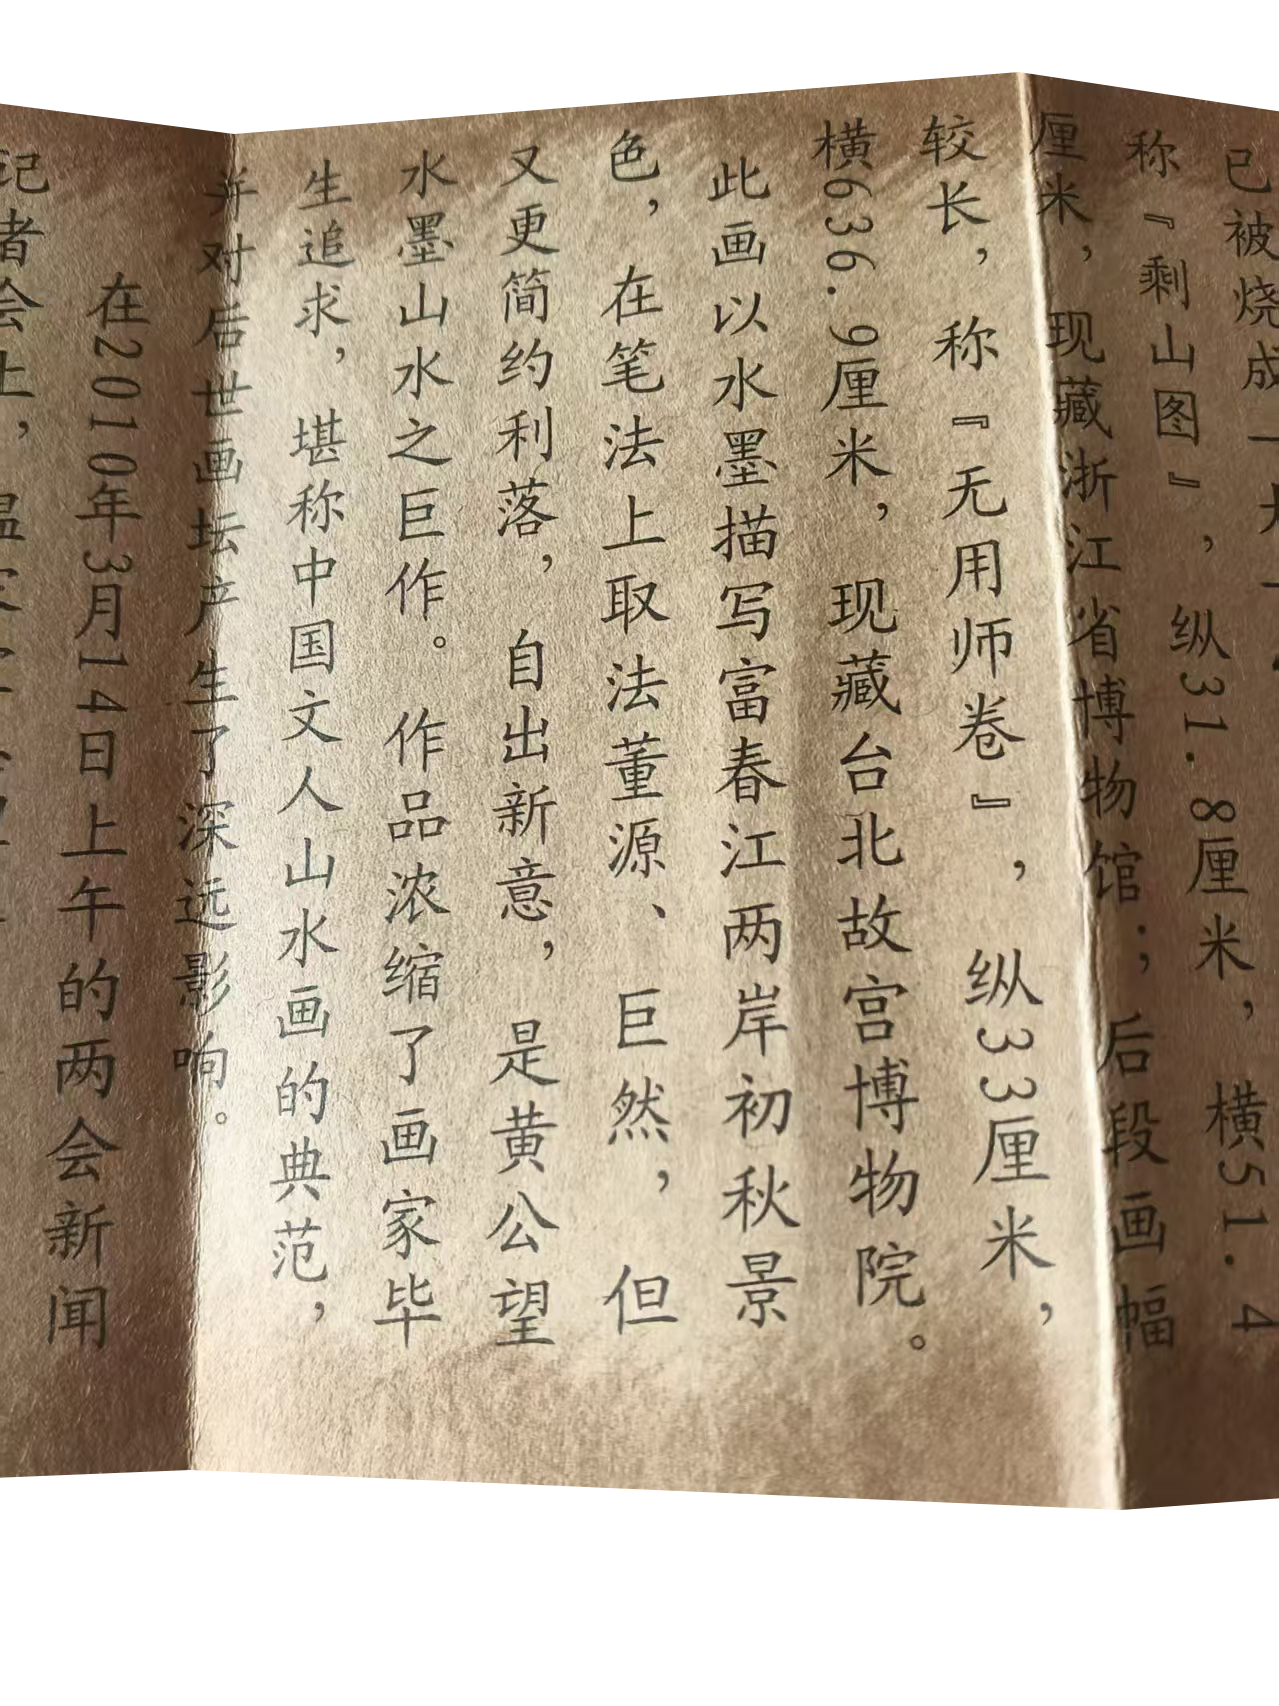 已被烧成一大一
称『剩山图』,纵31.8厘米,横51.4
厘米,现藏浙江省博物馆;后段画幅
较长,称『无用师卷』,纵33厘米,
横636.9厘米,现藏台北故宫博物院。
此画以水墨描写富春江两岸初秋景
色,在笔法上取法董源、巨然,但
又更简约利落,自出新意,是黄公望
水墨山水之巨作。作品浓缩了画家毕
生追求,堪称中国文人山水画的典范,
并对后世画坛产生了深远影响。
在2010年3月14日上午的两会新闻
记者会上,温家宝